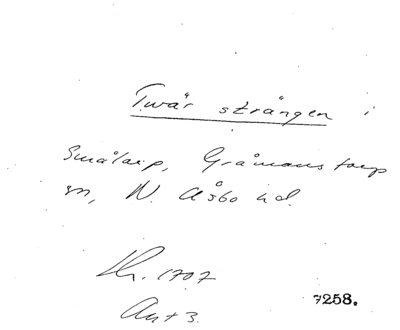 Twär strängen i
Smålarp, Gråmanstorps
sn, N. Åsbo hd.
Lh. 1707
Ant 3.
7258.